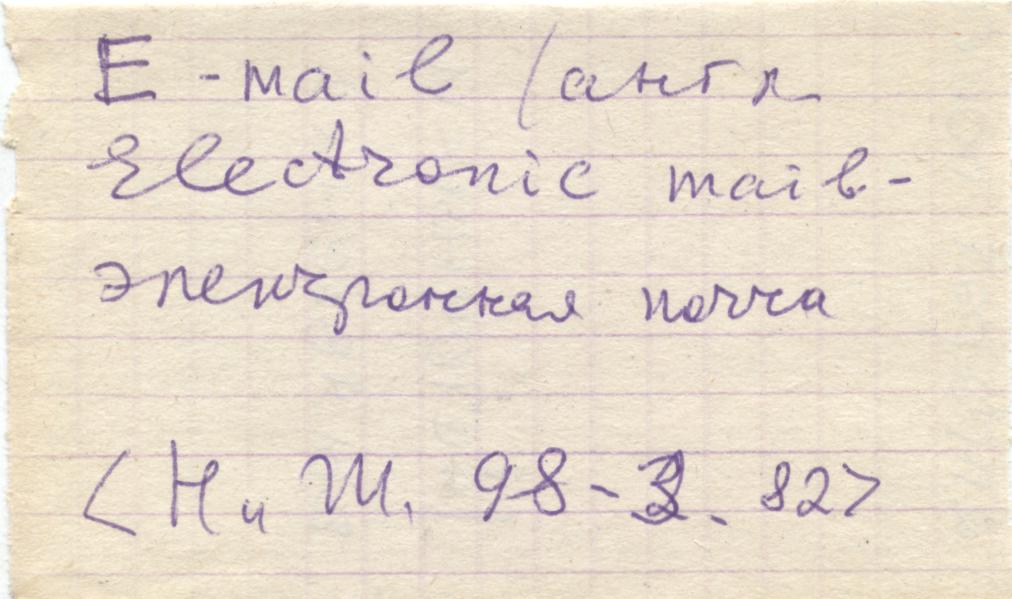 E-mail (англ
Electronic mail-
электронная почта
<Н и Ж. 98-3. 82>